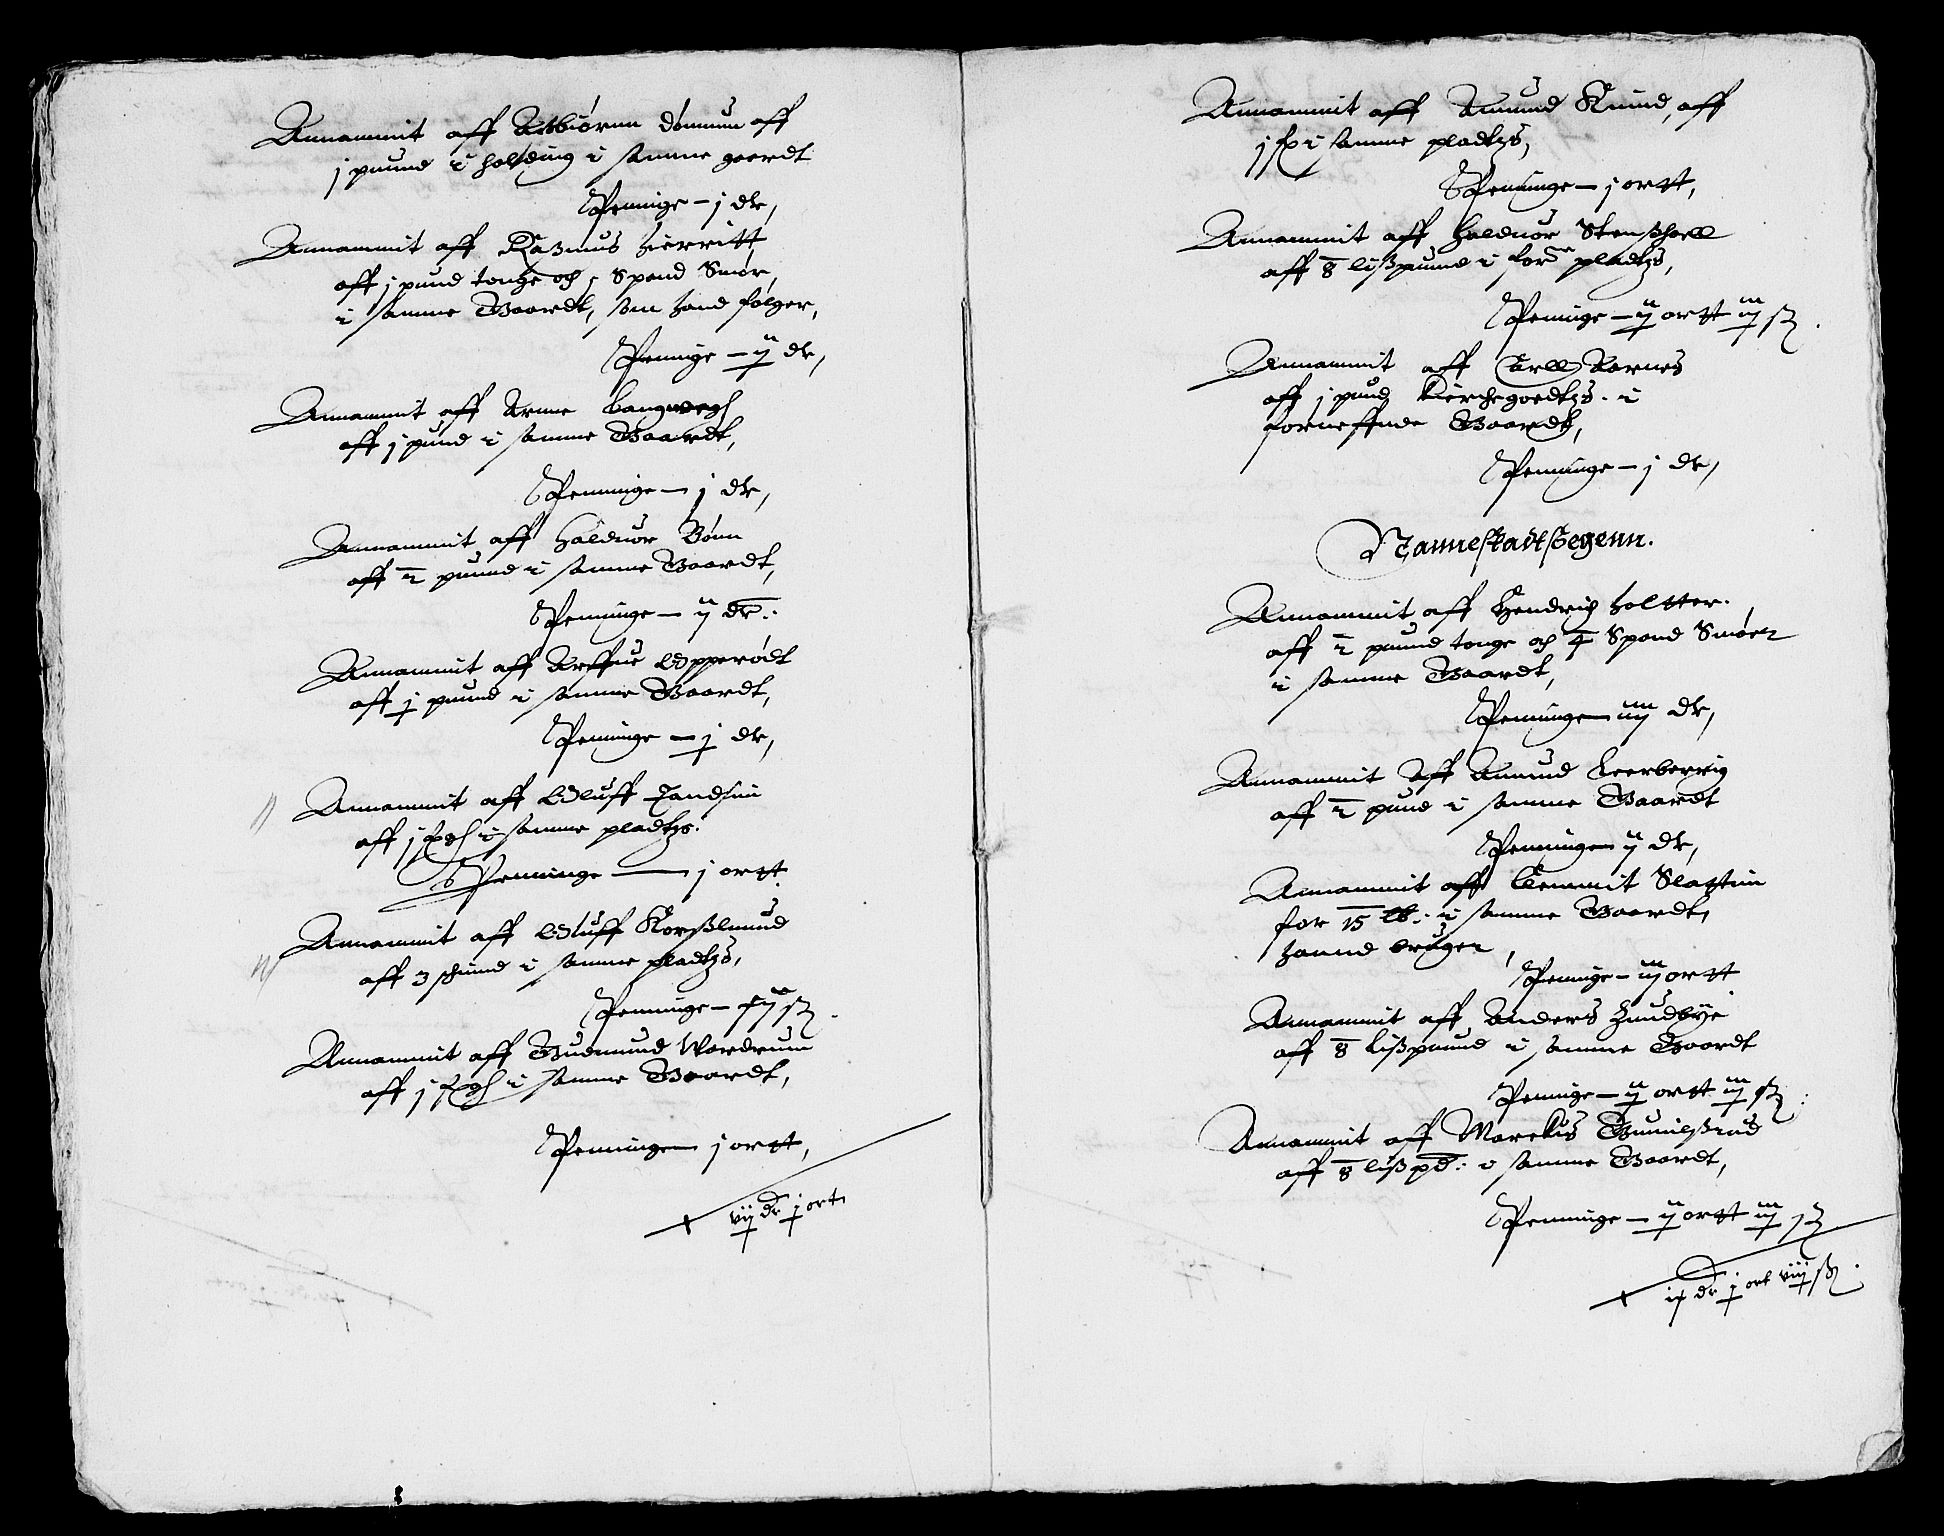 Annammit aff Asbiørnn dønnum aff
j puund i holding i samme gaardt
Penninge – j dr,
Annammit aff Rasmus
aff j pund tonge och j Spand Smør,
i samme Gaardt, som hand følger,
Penninge – ij dr,
Annammit aff Arnne Langwegh
aff j pund i samme Gaardt,
Penninge – j dr,
Annammit aff Halduor Bønn
aff 2 puund i samme Gaardt,
Penninge – ij dr.
Annammit aff Arffue Opperødt
aff j puund i samme Gaardt,
Penninge – j dr,
Annammit aff Oluff
aff j i samme pladtzs.
Penninge – j ortt
Annammit aff Oluff Korßlunnd
aff 3 schind i samme pladtzs,
Penninge – ß
Annammit aff Gudmund Wardrum
aff j i samme Gaardt,
Penninge j ortt,
vij dr j ort
Annammit aff Amund Knud, aff
j i samme pladtzs,
Penninge – j ortt,
Annammit aff Halduor
aff 8 lißpuund i forne pladtzs,
Penninge – ij ortt iij ß.
Annammit aff Carll Aarnes
aff j pund Kirchegoedtzs i
forneffnde Gaardt,
Penninge – j dr,
Nannestadt Segenn.
Annammit aff Hendrich Holtter
aff 2 puund tonge och 4 Spand Smøer
i samme Gaardt,
Penninge iiij dr,
Annammit aff Amund Leerberrig
aff 2 pund i samme Gaardt
Penninge ij dr,
Annammit aff Clemmit Slattum
for 15 lb. i samme Gaardt,
hannd bruger,
Penninge – iij ortt
Annammit aff Anders Hundbye
aff 8 Lißpuund i samme Gaardt
Penninge – ij ortt iij ß
Annammit aff Marckus Gunnilßrud
aff 8 lißpd: i samme Gaardt,
Penninge – ij ortt iij ß
ix dr j ort viij ß.